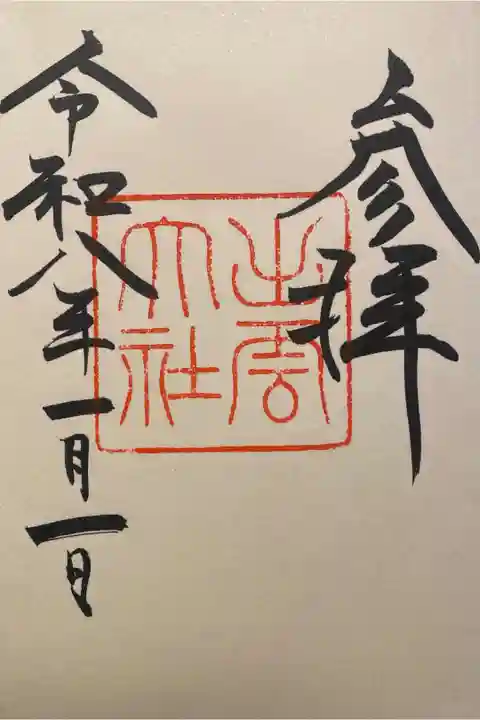 参拝
出雲
大社
令和八年一月一日